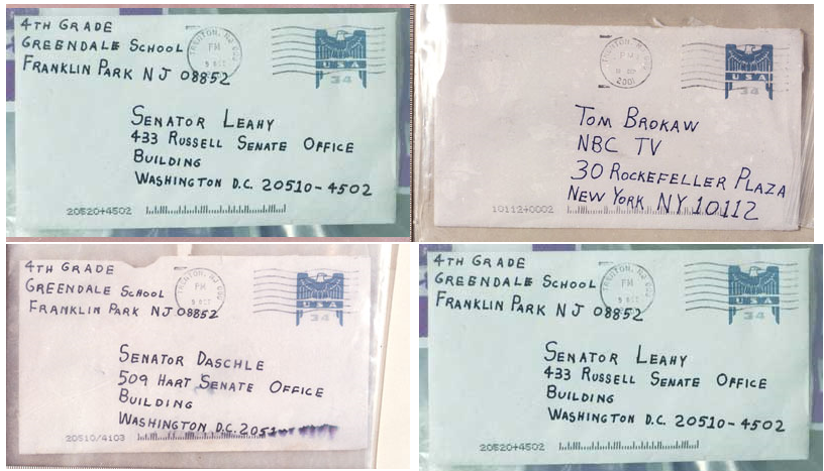 4TH GRADE
GREENDALE SCHOOL
FRANKLIN PARK NJ 08852
TRENTON, NJ
PM
USA
34
SENATOR LEAHY
433 RUSSELL SENATE OFFICE
BUILDING
WASHINGTON D.C. 20510-4502
20520+4502
TRENTON, NJ
2001
USA
34
TOM BROKAW
NBC TV
30 ROCKEFELLER PLAZA
NEW YORK NY 10112
10112+0002
4TH GRADE
GREENDALE SCHOOL
FRANKLIN PARK NJ 08852
TRENTON, NJ
PM
USA
34
SENATOR DASCHLE
509 HART SENATE OFFICE
BUILDING
WASHINGTON D.C. 2051
20510/4103
4TH GRADE
GREENDALE SCHOOL
FRANKLIN PARK NJ 08852
TRENTON, NJ
PM
USA
34
SENATOR LEAHY
433 RUSSELL SENATE OFFICE
BUILDING
WASHINGTON D.C. 20510-4502
20520+4502